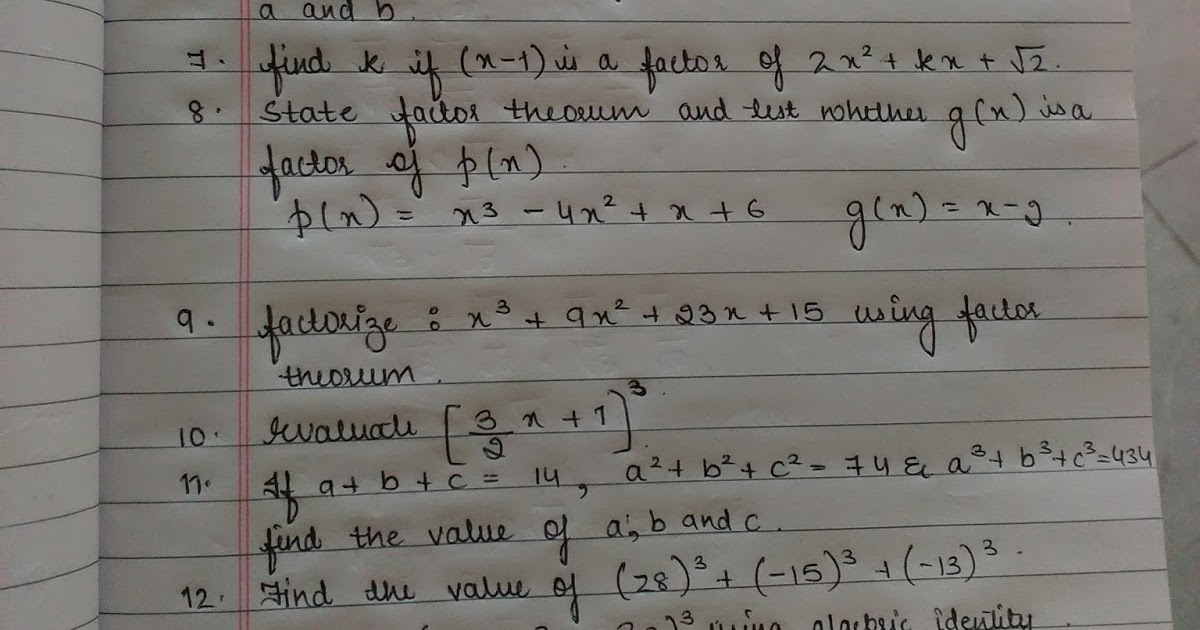 a and b.
7. find k if (x-1) is a factor of 2x² + kx + √2.
8. State factor theorum and test whether g(x) is a
factor of p(x).
p(x) = x³ - 4x² + x + 6 g(x) = x-2.
9. factorize : x³ + 9x² + 23x + 15 using factor
theorum.
10. Evaluate [3/2 x + 1]³.
11. If a + b + c = 14, a² + b² + c² = 74 & a³ + b³ + c³ = 434
find the value of a, b and c.
12. Find the value of (28)³ + (-15)³ + (-13)³.
)³ using algebric identity.